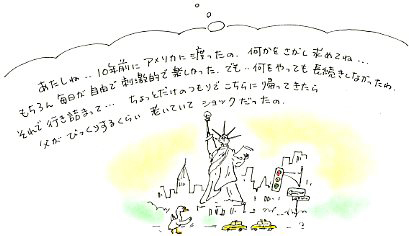 あたしね‥10年前にアメリカに渡ったの。何かをさがし求めてね…
もちろん毎日が自由で刺激的で楽しかった。でも‥何をやっても長続きしなかったわ。
それで行き詰まって… ちょっとだけのつもりでこちらに帰ってきたら
父がびっくりするくらい老いていてショックだったの.